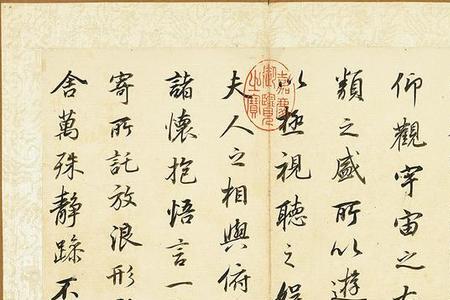 仰觀宇宙之大
類之盛所以遊
以極視聽之娛
夫人之相與俯
諸懷抱悟言一
寄所託放浪形
舍萬殊靜躁不
嘉慶御覽之寶